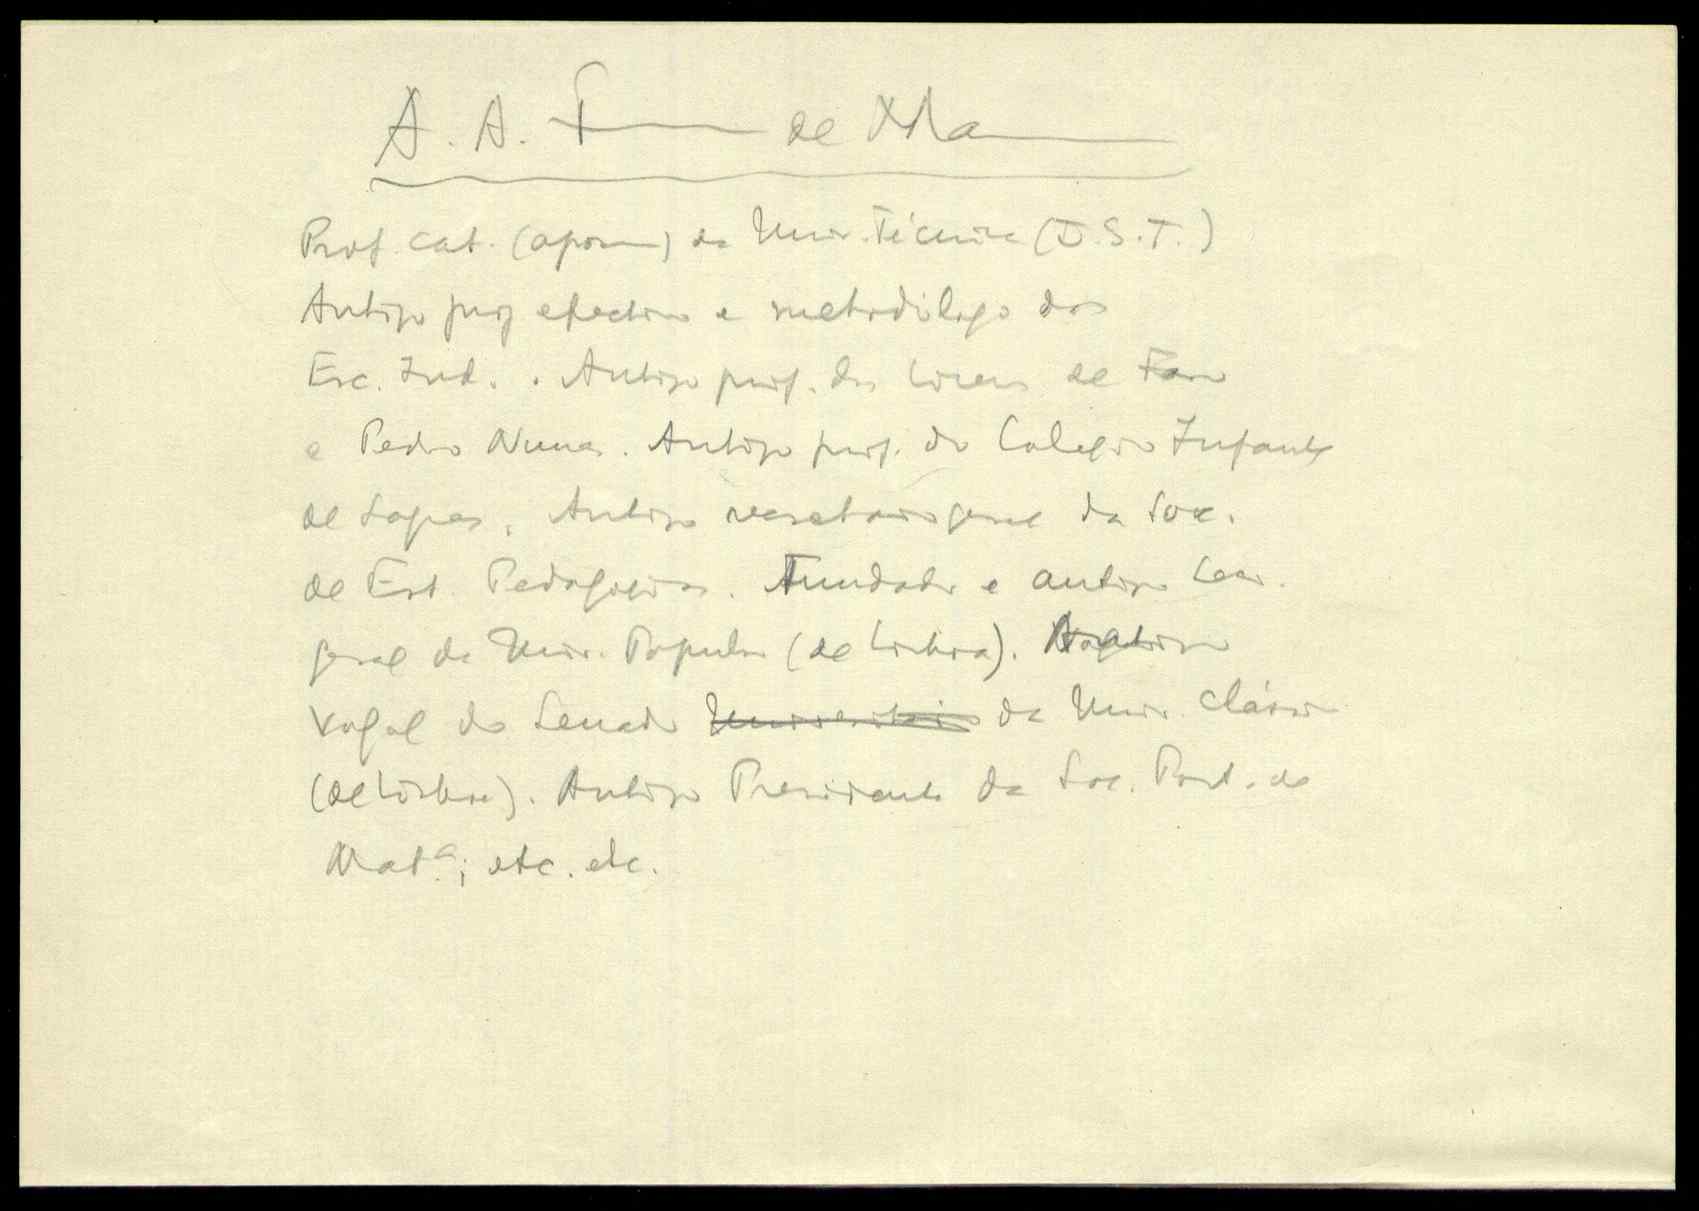 A. A. F de Ma
Prof. cat. (apos) da Univ. Técnica (I.S.T.)
Antigo prof efectivo e metodólogo das
Esc. Ind. . Antigo prof. dos Liceus de Faro
e Pedro Nunes. Antigo prof. do Colégio Infante
de Sagres. Antigo secretário geral da Soc.
de Est. Pedagógicos. Fundador e antigo Secr.
geral da Univ. Popular (de Lisboa). Antigo
Vogal do Senado Universitário da Univ. Clássica
(de Lisboa). Antigo Presidente da Soc. Port. de
Mat.ª; etc. etc.